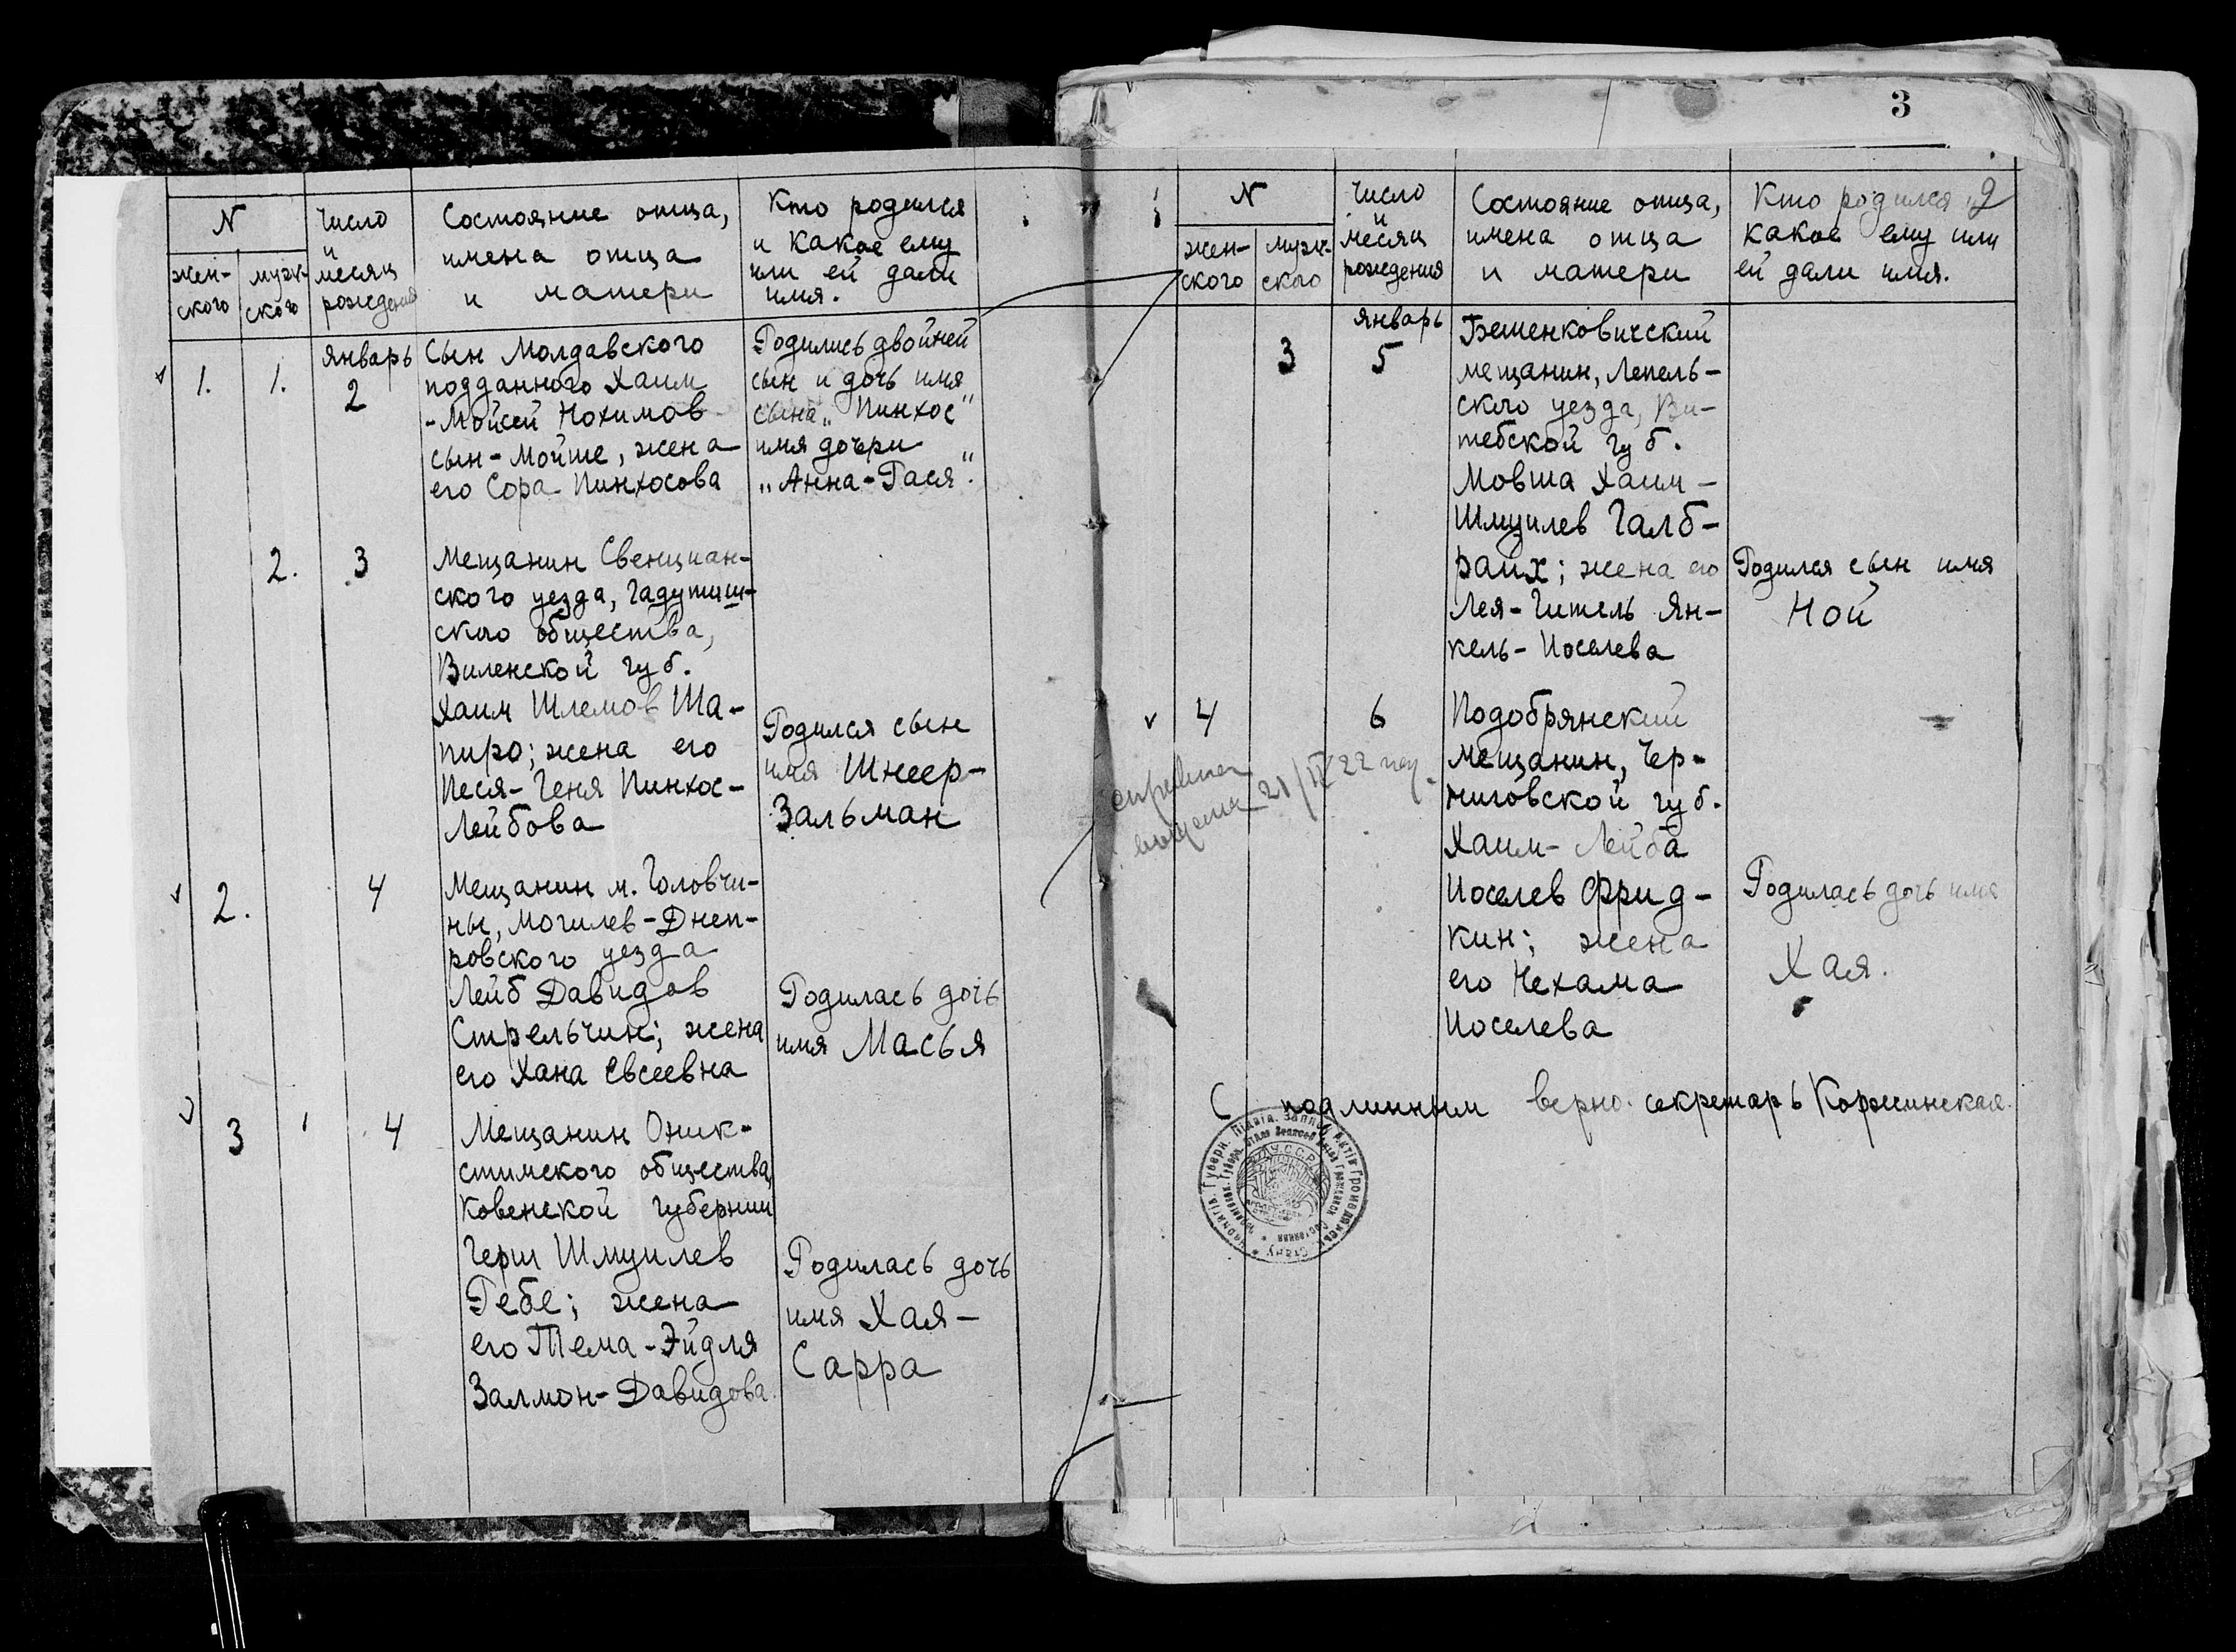 N
жен-
ского
муж-
ского
Число
и
месяц
рождения
Состояние отца,
имена отца
и матери
Кто родился
и какое ему
или ей дали
имя.
1.
1.
январь
2
Сын Молдавского
подданного Хаим
-Мойсей Нохимов
сын-Мойше, жена
его Сора Пинхосова
Родились двойней
сын и дочь имя
сына „Пинхос"
имя дочри
„Анна-Гася".
2.
3
Мещанин Свенциан-
ского уезда, Гадутиш-
ского общества,
Виленской губ.
Хаим Шлемов Ша-
пиро; жена его
Песя-Геня Пинхос-
Лейбова
Родился сын
имя Шнеер-
Зальман
2.
4
Мещанин м. Головчи-
ны, Могилев-Днеп-
ровского уезда
Лейб Давидов
Стрельчин; жена
его Хана Евсеевна
Родилась дочь
имя Масья
3
4
Мещанин Оник-
штимского общества,
Ковенской губернии
Герш Шмуилев
Гебе; жена
его Тема-Эйдля
Залмон-Давидова.
Родилась дочь
имя Хая-
Сарра
3
2
N
жен-
ского
муж-
ского
Число
и
месяц
рождения
Состояние отца,
имена отца
и матери
Кто родился и
какое ему или
ей дали имя.
3
январь
5
Бешенковичский
мещанин, Лепель-
ского уезда, Ви-
тебской губ.
Мовша Хаим-
Шмуилев Галб-
райх; жена его
Лея-Гитель Ян-
кель-Иоселева
Родился сын имя
Ной
4
6
Подобрянский
мещанин, Чер-
ниговской губ.
Хаим-Лейба
Иоселев Фрид-
кин; жена
его Нехама
Иоселева
Родилась дочь имя
Хая.
21/IV 22
С подлинным верно. секретарь Коржинская.
У.С.С.Р.